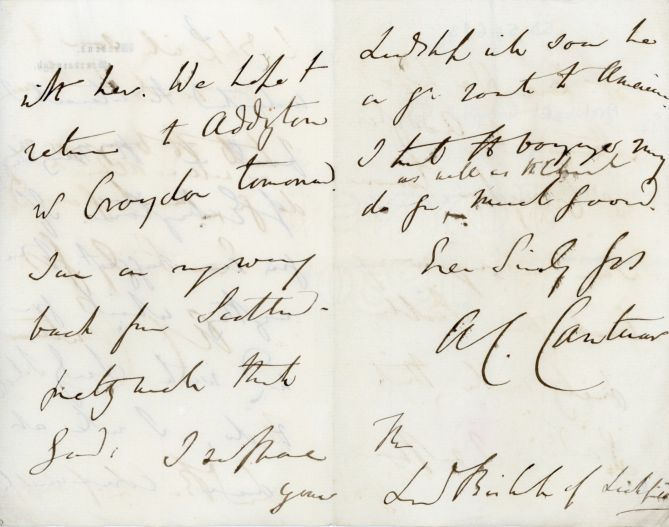 with her. We hope to
return to Addington
nr Croydon tomorrow.
I am on my way
back from Scotland –
pretty well thank
God. I suppose
your
Lordship will soon be
on yr route to America
I trust the voyage may
as well as the Church
do yr much good.
Ever Sincly Yrs
A C. Cantuar
The
Lord Bishop of Lichfield